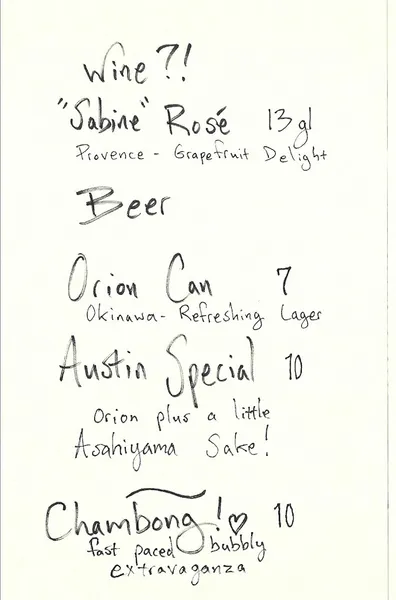 Wine?!
"Sabine" Rosé 13 gl
Provence - Grapefruit Delight
Beer
Orion Can 7
Okinawa- Refreshing Lager
Austin Special 10
Orion plus a little
Asahiyama Sake!
Chambong!♡ 10
fast paced bubbly
extravaganza